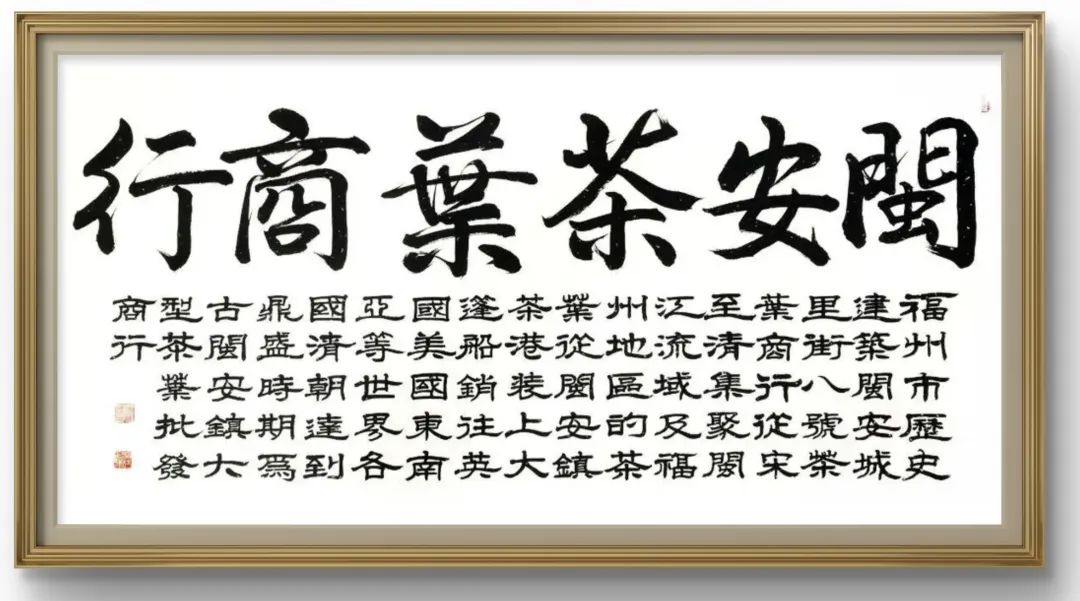 閩安茶葉商行
福州市歷史
建築閩安城
里街八號茶
葉商行從宋
至清集聚閩
江流域及福
州地區的茶
葉從閩安鎮
茶港裝上大
蓬船銷往英
國美國東南
亞等世界各
國清朝達到
鼎盛時期爲
古閩安鎮大
型茶葉批發
商行